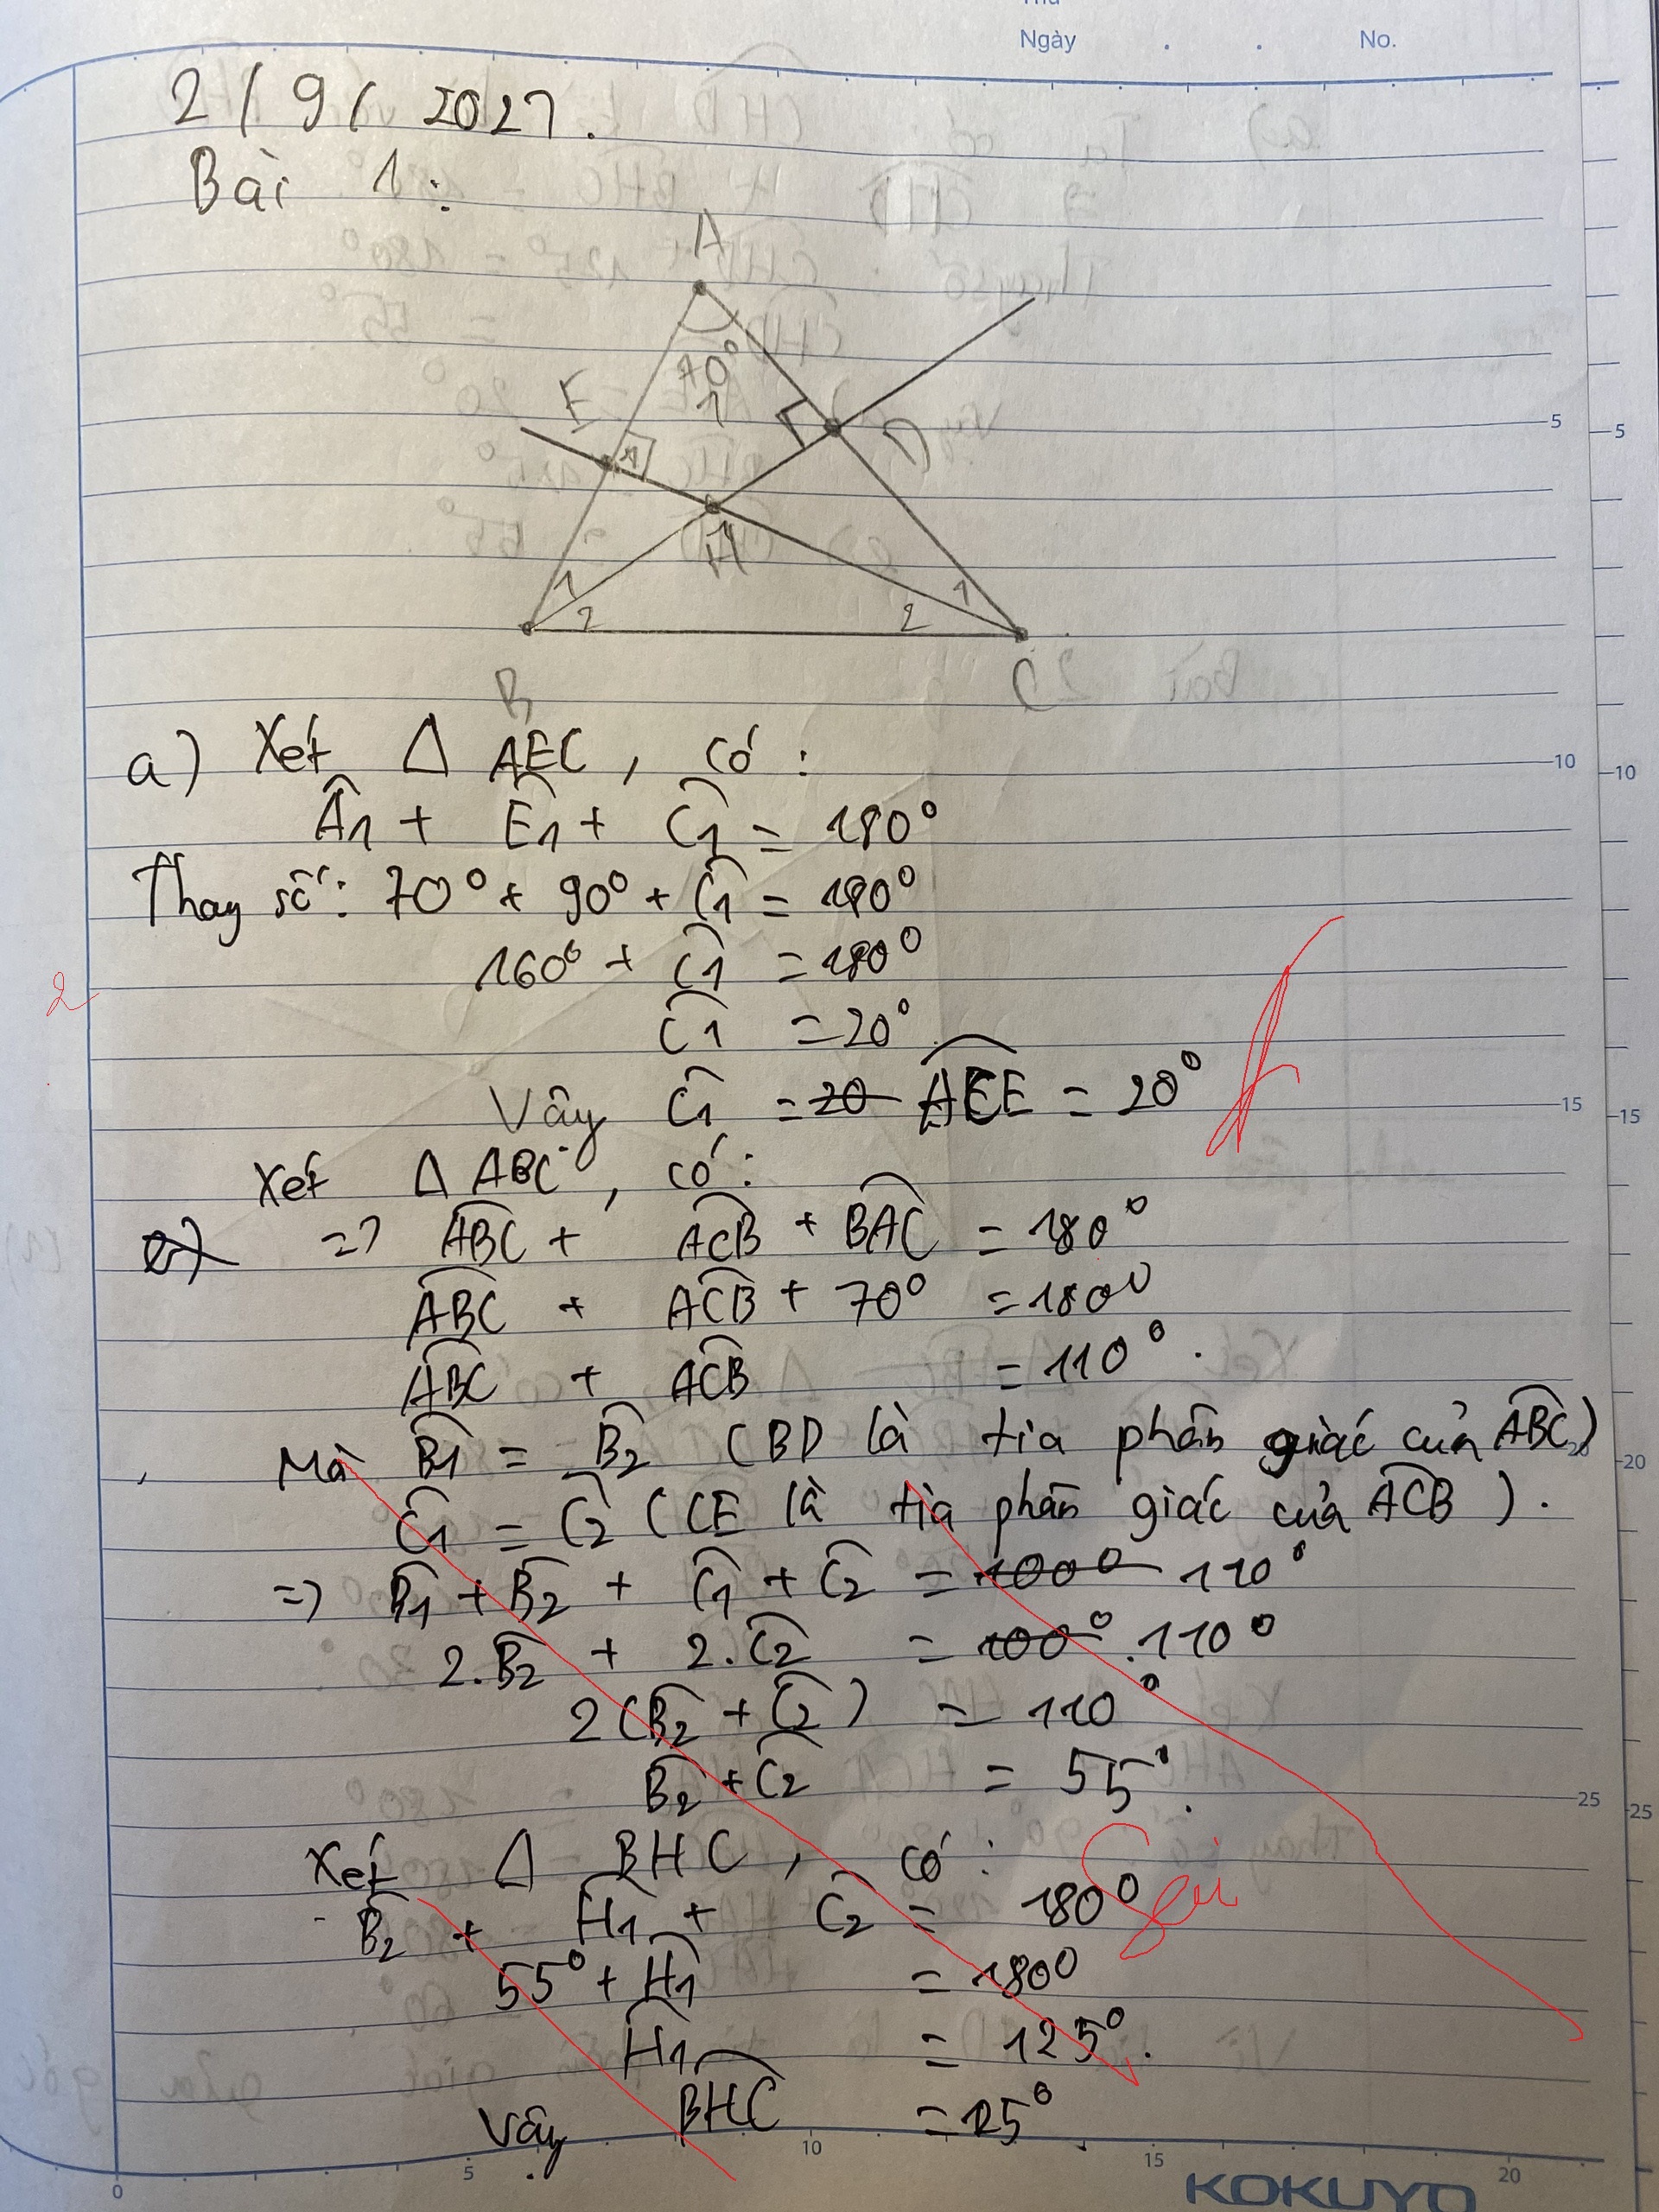 Thứ
Ngày . . No.
2 / 9 / 2027.
Bài 1:
A
70°
1
E
1
D
H
1
1
2
2
1
B
C
a) Xét Δ AEC, có:
Â1 + Ê1 + Ĉ1 = 180°
Thay số: 70° + 90° + Ĉ1 = 180°
160° + Ĉ1 = 180°
2
Ĉ1 = 20°
Vậy Ĉ1 = 20 ACE = 20°
Xét Δ ABC, có:
=> ABC + ACB + BAC = 180°
ABC + ACB + 70° = 180°
ABC + ACB = 110°.
Mà B̂1 = B̂2 (BD là tia phân giác của ABC)
Ĉ1 = Ĉ2 (CE là tia phân giác của ACB).
=> B̂1 + B̂2 + Ĉ1 + Ĉ2 = 100° 110°
2.B̂2 + 2.Ĉ2 = 100°.110°
2(B̂2 + Ĉ2) = 110°
B̂2 + Ĉ2 = 55°.
Xét Δ BHC, có:
B̂2 + Ĥ1 + Ĉ2 = 180°
Sai
55° + Ĥ1 = 180°
Ĥ1 = 125°.
Vậy BHC = 125°
5 5
10 10
15 15
20 20
25 25
0 5 10 15 20
KOKUYO